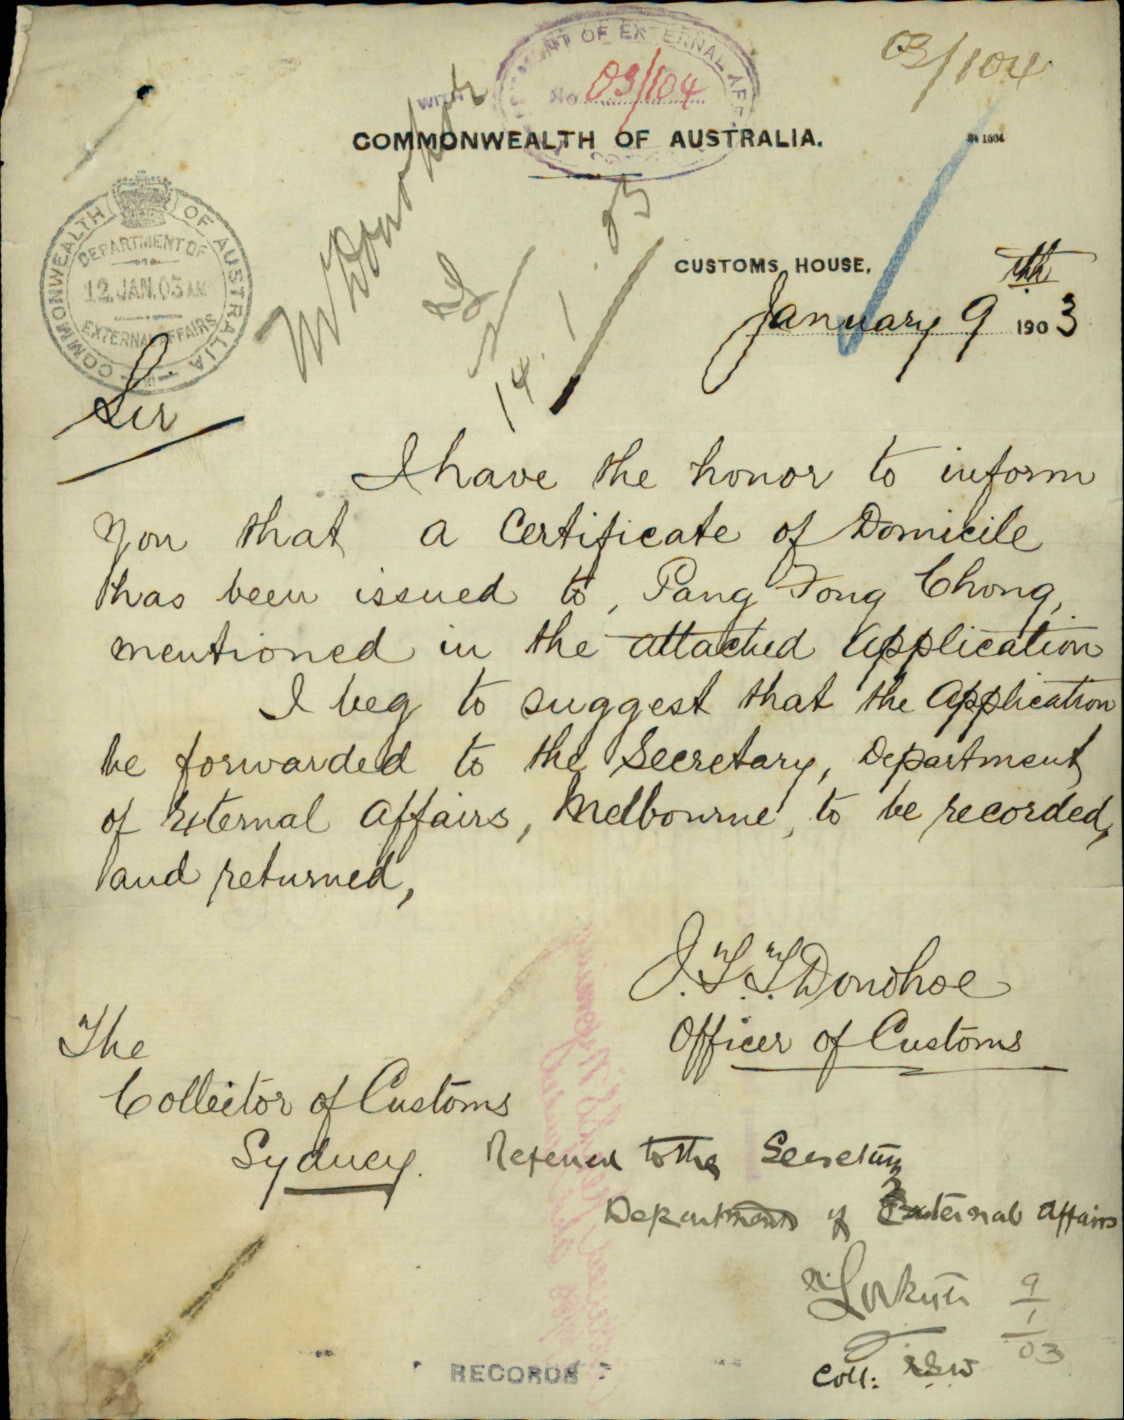 03/104
DEPARTMENT OF EXTERNAL AFF
No 03/104
WITH
COMMONWEALTH OF AUSTRALIA.
COMMONWEALTH OF AUSTRALIA
DEPARTMENT OF
12. JAN. 03 AM
EXTERNAL AFFAIRS
CUSTOMS HOUSE,
January 9th 1903
14.1.03
Sir
I have the honor to inform
you that a Certificate of Domicile
has been issued to, Pang Fong Chong,
mentioned in the attached application
I beg to suggest that the application
be forwarded to the Secretary, Department
of External Affairs, Melbourne, to be recorded,
and returned,
J. T. T. Donohoe
Officer of Customs
The
Collector of Customs
Sydney.
Referred to the Secretary
Department of External Affairs
N. Lockyer
9/1/03
Coll: NSW
RECORDS